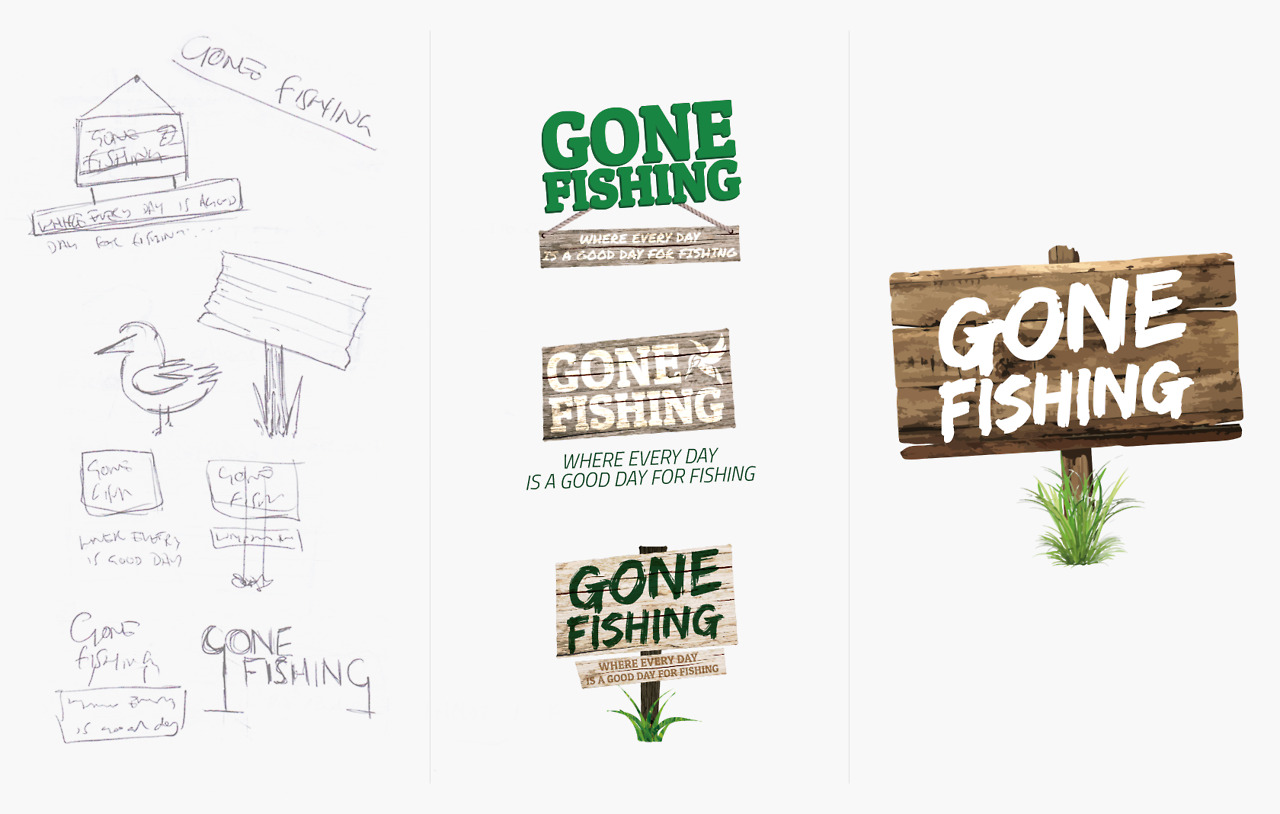 GONE FISHING
GONE
FISHING
WHERE EVERY DAY IS A GOOD
DAY FOR FISHING.....
GONE
GONE
FISH
EVERY
IS GOOD DAY
GONE
FISHING
is good day
GONE
FISHING
GONE
FISHING
WHERE EVERY DAY
IS A GOOD DAY FOR FISHING
GONE
FISHING
WHERE EVERY DAY
IS A GOOD DAY FOR FISHING
GONE
FISHING
WHERE EVERY DAY
IS A GOOD DAY FOR FISHING
GONE
FISHING